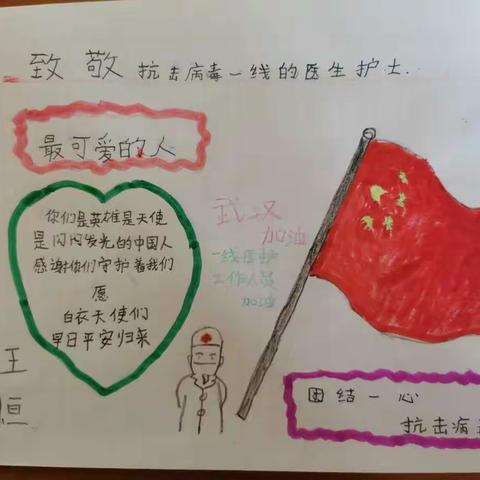 致敬抗击病毒一线的医生护士.
最可爱的人
你们是英雄是天使
是闪闪发光的中国人
感谢你们守护着我们
愿
白衣天使们
早日平安归来
武汉
加油
一线医护
工作人员
加油
王
恒
团结一心
抗击病